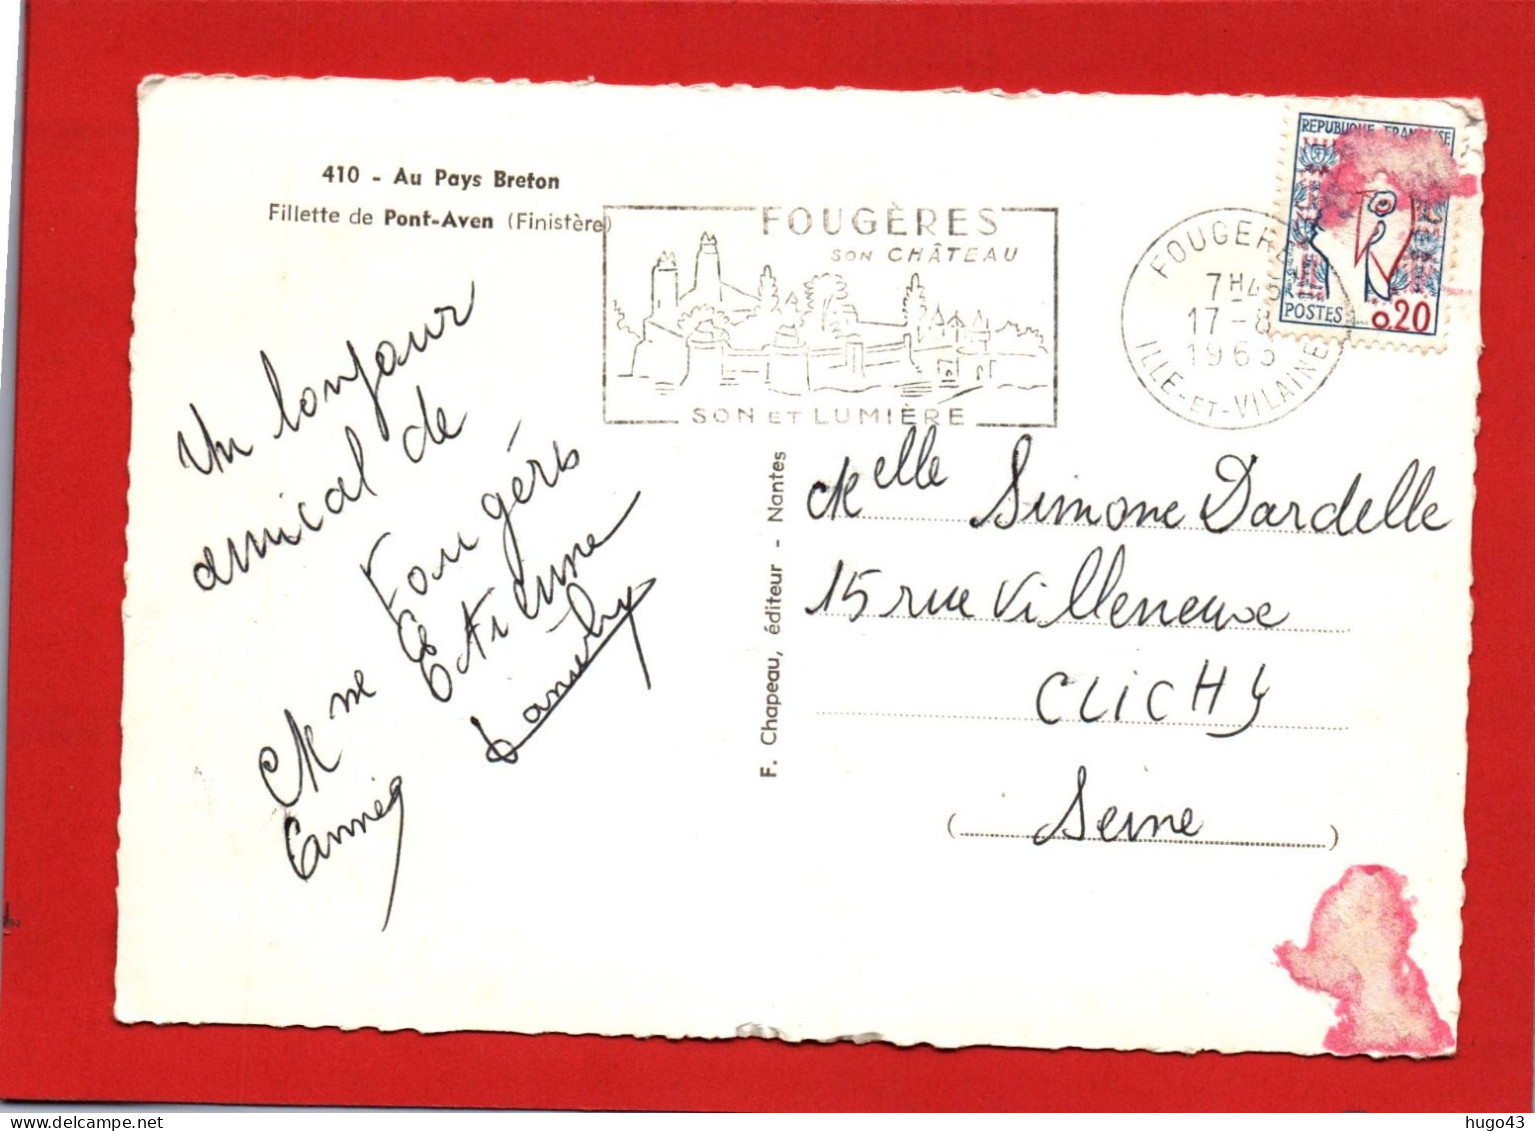 410 - Au Pays Breton
Fillette de Pont-Aven (Finistère)
FOUGÈRES
SON CHÂTEAU
SON ET LUMIÈRE
FOUGERES
7H45
17-8
ILLE-ET-VILAINE
REPUBLIQUE FRANÇAISE
POSTES
0.20
Un bonjour
amical de
Fougéres
Etienne
Mme
F. Chapeau, éditeur - Nantes
Melle Simone Dardelle
15 rue Villeneuve
CLICHY
(Seine)
hugo43